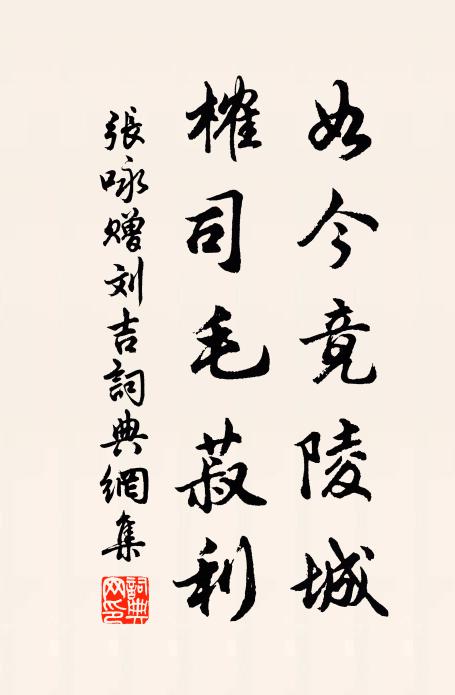 如今竟陵城
榷司毛菽利
張咏赠刘吉詞典網集
詞典网印